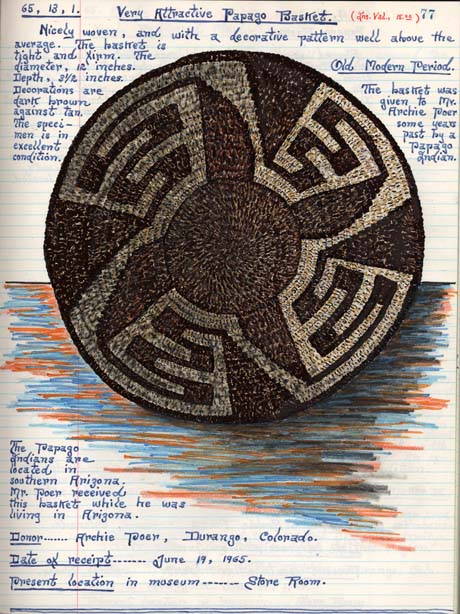 65, 13, 1. Very Attractive Papago Basket. (Ins. Val., 15.00) 77
Nicely woven, and with a decorative pattern well above the
average. The basket is
tight and firm. The
diameter, 12 inches.
Depth, 3½ inches.
Decorations are
dark brown
against tan.
The speci-
men is in
excellent
condition.
Old Modern Period.
The basket was
given to Mr.
Archie Poer
some years
past by a
Papago
Indian.
The Papago
Indians are
located in
southern Arizona.
Mr. Poer received
this basket while he was
living in Arizona.
Donor...... Archie Poer, Durango, Colorado.
Date of receipt------- June 19, 1965.
Present location in museum------- Store Room.